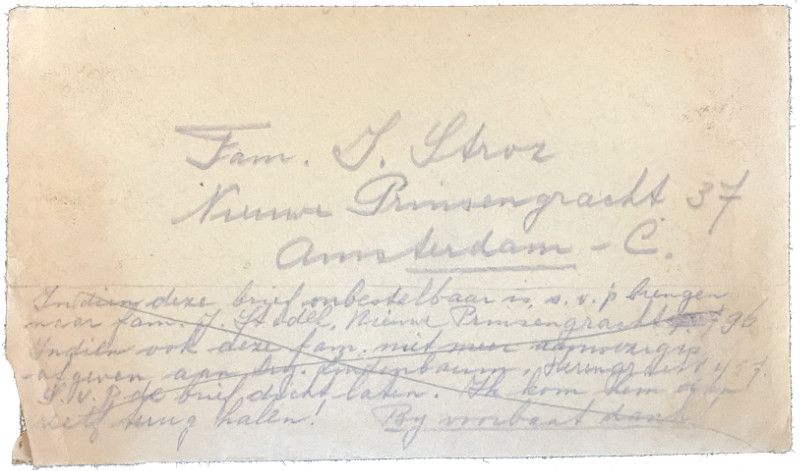 Fam. J. Stroz
Nieuwe Prinsengracht 37
Amsterdam - C.
Indien deze brief onbestelbaar is, s.v.p brengen
naar fam. J. Stodel, Nieuwe Prinsengracht 96
Indien ook deze fam. niet meer aanwezig is
afgeven aan Lindenbaum, Herengracht
S.v.p de brief dicht laten. Ik kom hem daar
zelf terug halen! By voorbaat dank